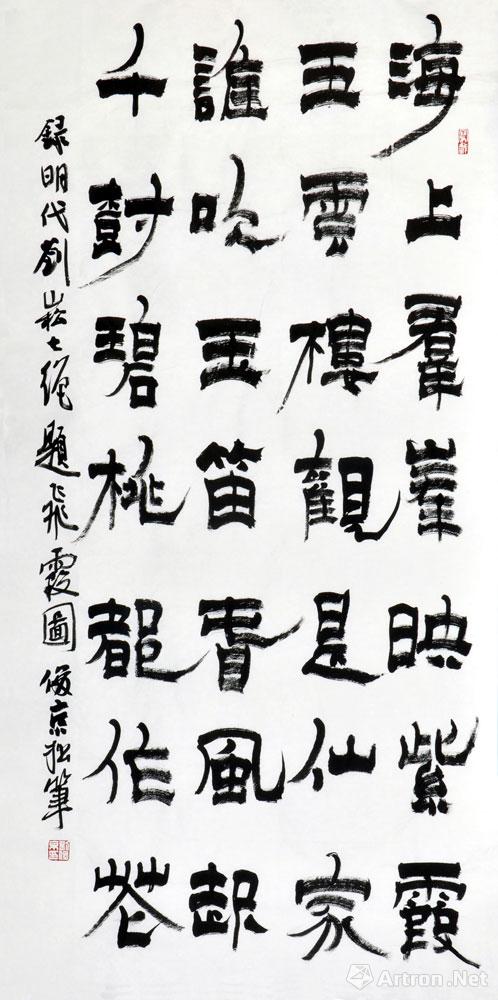 海上羣峯映紫霞
五雲樓觀是仙家
誰吹玉笛春風起
千樹碧桃都作花
録明代劉崧七绝題飛霞圖 俊京拙筆
Artron.Net